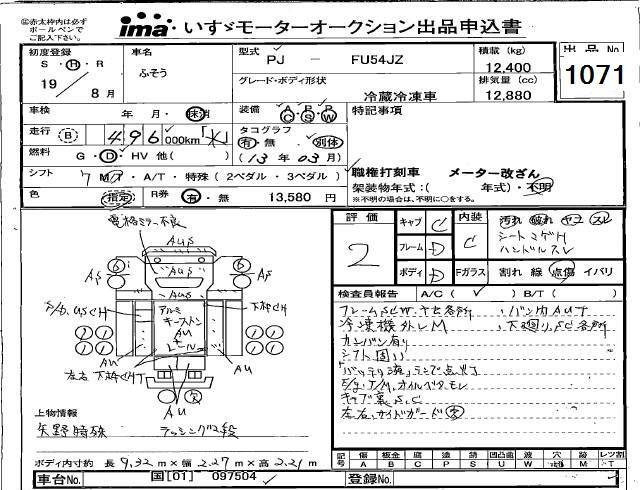 ㊟赤太枠内は必ず
ボールペンで
ご記入下さい。
ima いすゞモーターオークション出品申込書
初度登録
S・H・R
19 / 8月
車名
ふそう
型式
PJ - FU54JZ
積載 (kg)
12,400
出品No
1071
グレード・ボディ形状
冷蔵冷凍車
排気量 (cc)
12,880
車検
年 月・抹消
装備
A P P
C S W
特記事項
走行
B
496,000km「メ」
タコグラフ
有・無 別体
燃料
G・D・HV 他( )
(13年03月)
シフト
7 M/T・A/T・特殊 (2ペダル・3ペダル)
職権打刻車 メーター改ざん
架装物年式:( 年式)・不明
※不明の場合は、不明に○をする。
色
指定
R券
有・無
13,580 円
電格ミラー不良
Aus
Aus
6 i
6
Ap
Ap
Aus
アルミ
キーストン
AU
レール
AU
AU
AU
左右 下枠CHT
上物情報
矢野特殊 ラッシング2段
ボディ内寸約 長 9.32 m × 幅 2.27 m × 高 2.21 m
評価
2
キャブ C
フレーム D
ボディ D
内装
C
Fガラス
汚れ 破れ ヤコ スレ
シートコゲH
ハンドルスレ
割れ 線 点傷 イバリ
検査員報告 A/C ( ✓ ) B/T ( )
冷凍機外レM
カンバン有り
シフト固い
「バッテリ液」ランプ点灯
E/g、T/M、オイルベタモレ
キャブ裏S.C
左右、サイドガード欠
記号
傷 板金 腐 塗 錆 凹凸曲 波 穴 痛 レツ割
A B C P S U W H M T
車台No.
国[01] 097504
登録No.